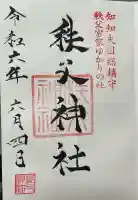 知知夫国総鎮守
秩父宮家ゆかりの社
秩父神社
令和六年
六月四日